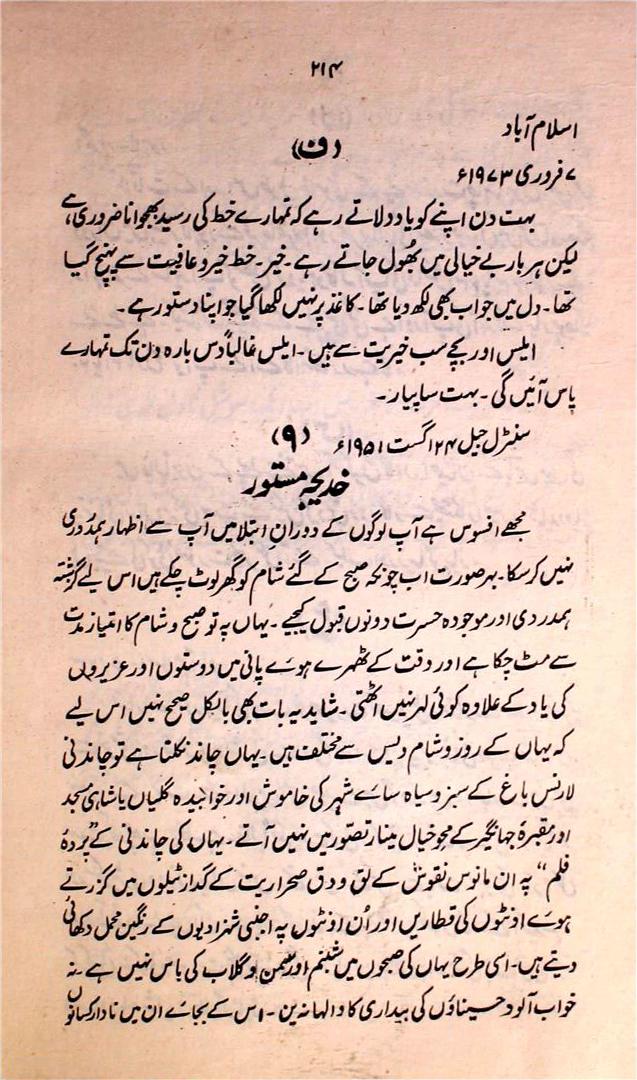 ۲۱۴
اسلام آباد
(ف)
۷ فروری ۱۹۷۳ء
بہت دن اپنے کو یاد دلاتے رہے کہ تمہارے خط کی رسید بھجوانا ضروری ہے
لیکن ہر بار بے خیالی میں بھُول جاتے رہے۔ خیر۔ خط خیر و عافیت سے پہنچ گیا
تھا۔ دل میں جواب بھی لکھ دیا تھا۔ کاغذ پر نہیں لکھا گیا جو اپنا دستور ہے۔
ایلس اور بچے سب خیریت سے ہیں۔ ایلس غالباً دس بارہ دن تک تمہارے
پاس آئیں گی۔ بہت سا پیار۔
سنٹرل جیل ۲۴ اگست ۱۹۵۱ء (۹)
خدیجہ مستور
مجھے افسوس ہے آپ لوگوں کے دورانِ ابتلا میں آپ سے اظہار ہمدُردی
نہیں کر سکا۔ بہر صورت اب چونکہ صبح کے گئے شام کو گھر لوٹ چکے ہیں اس لیے گزشتہ
ہمدردی اور موجودہ حسرت دونوں قبول کیجیے۔ یہاں پہ تو صبح و شام کا امتیاز مدت
سے مٹ چکا ہے اور وقت کے ٹھہرے ہوئے پانی میں دوستوں اور عزیزوں
کی یاد کے علاوہ کوئی لہر نہیں اٹھتی۔ شاید یہ بات بھی بالکل صحیح نہیں اس لیے
کہ یہاں کے روز و شام دیس سے مختلف ہیں۔ یہاں چاند نکلتا ہے تو چاندنی
لارنس باغ کے سبز و سیاہ سائے شہر کی خاموش اور خوابیدہ گلیاں یا شاہی مسجد
اور مقبرۂ جہانگیر کے محو خیال مینار تصوّر میں نہیں آتے۔ یہاں کی چاندنی کے ”پردۂ
فلم“ پہ ان مانوس نقوش کے لق و دق صحرا ریت کے گداز ٹیلوں میں گزرتے
ہوئے اونٹوں کی قطاریں اور اُن اونٹوں پہ اجنبی شہزادیوں کے رنگین محمل دکھائی
دیتے ہیں۔ اسی طرح یہاں کی صبحوں میں شبنم اور سمن و گلاب کی باس نہیں ہے نہ
خواب آلود حسیناؤں کی بیداری کا والہانہ پن۔ اس کے بجائے ان میں نادار کسانوں